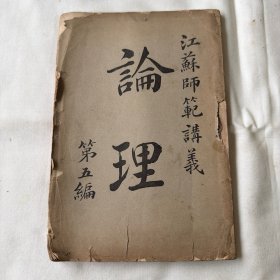 江蘇師範講義
論理
第五編